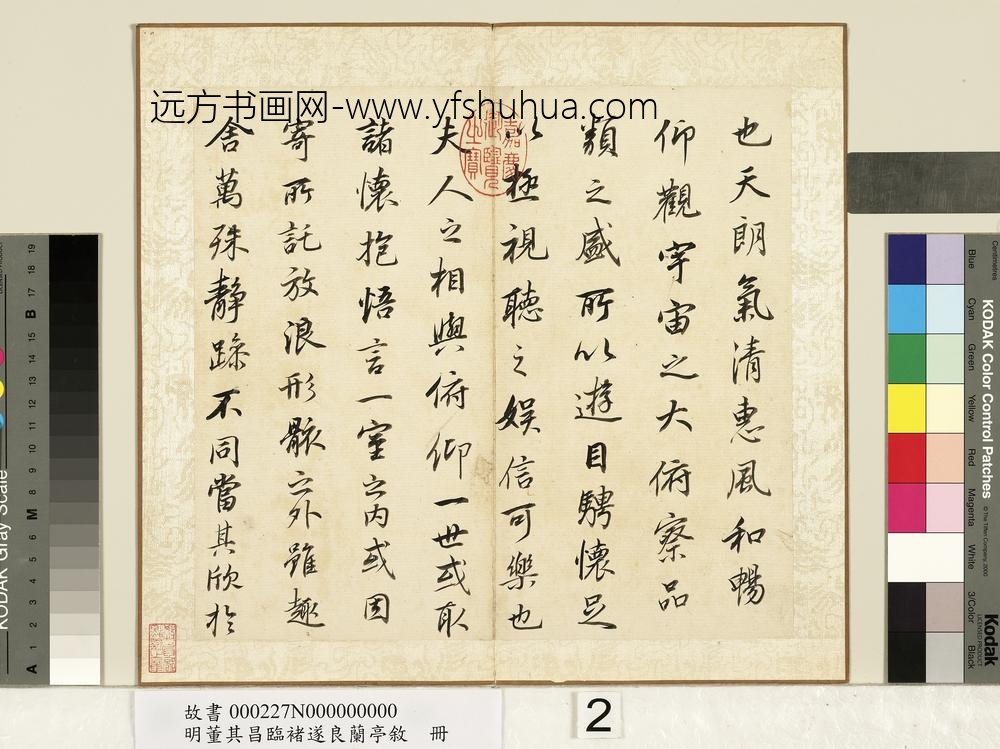 远方书画网-www.yfshuhua.com
也天朗氣清惠風和暢
仰觀宇宙之大俯察品
類之盛所以遊目騁懷足
以極視聽之娛信可樂也
夫人之相與俯仰一世或取
諸懷抱悟言一室之內或因
寄所託放浪形骸之外雖趣
舍萬殊静躁不同當其欣於
嘉慶
御覽
之寶
故書 000227N000000000
明董其昌臨褚遂良蘭亭敘 冊
2
KODAK Gray Scale
A 1 2 3 4 5 6 M 8 9 10 11 12 13 14 15 B 17 18 19
KODAK Color Control Patches
Blue Cyan Green Yellow Red Magenta White 3/Color Black
Centimetres
Kodak
LICENSED PRODUCT
© The Tiffen Company, 2000